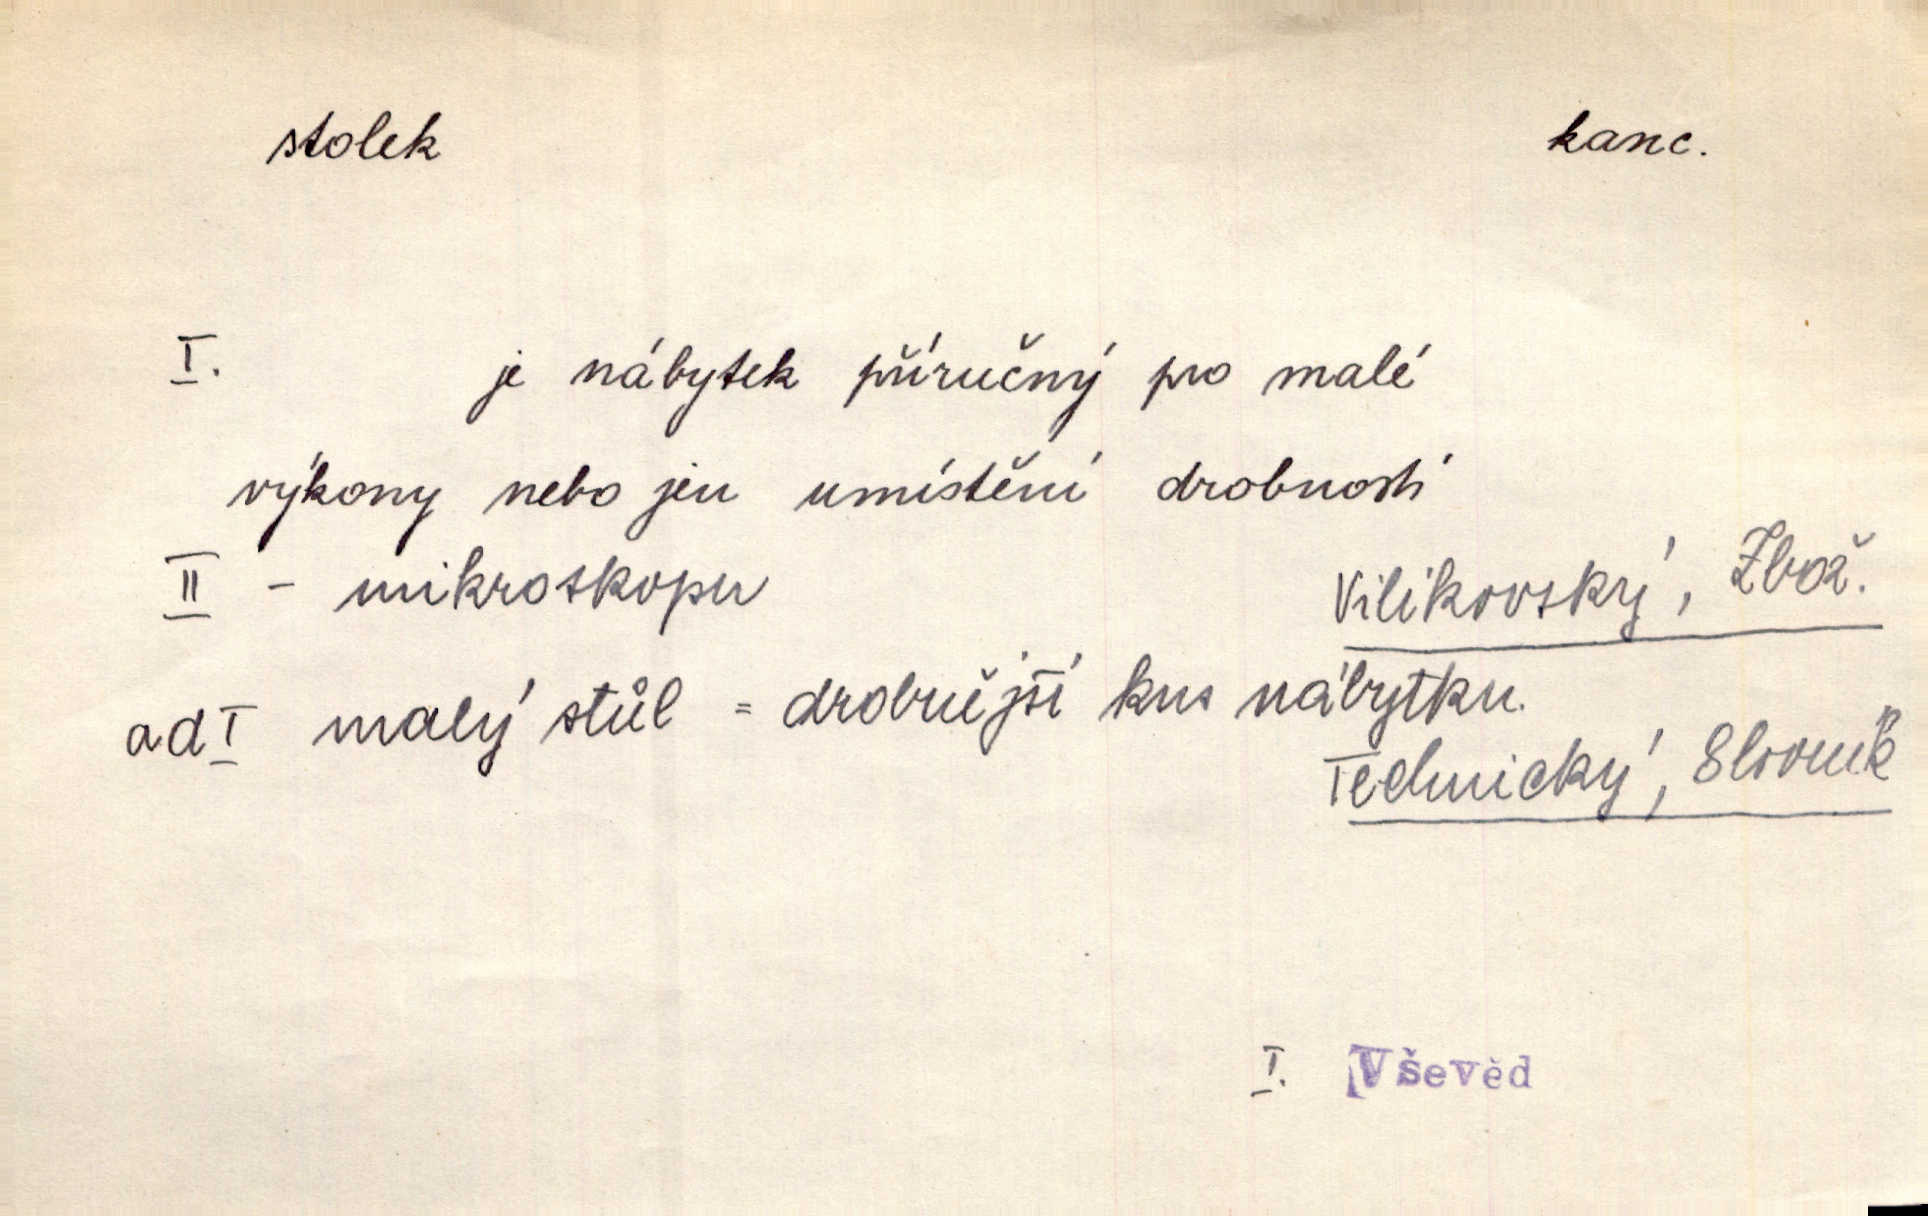 stolek kanc.
I. je nábytek příručný pro malé
výkony nebo jen umístění drobností
II - mikroskopu
Vilikovský, Zbož.
ad I malý stůl = drobnější kus nábytku.
Technický, Slovník
I. Vševěd